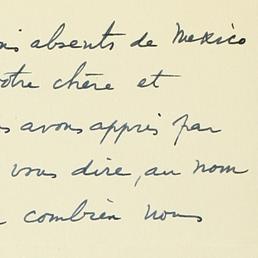 absents de Mexico
chère et
avons appris par
vous dire, au nom
combien nous